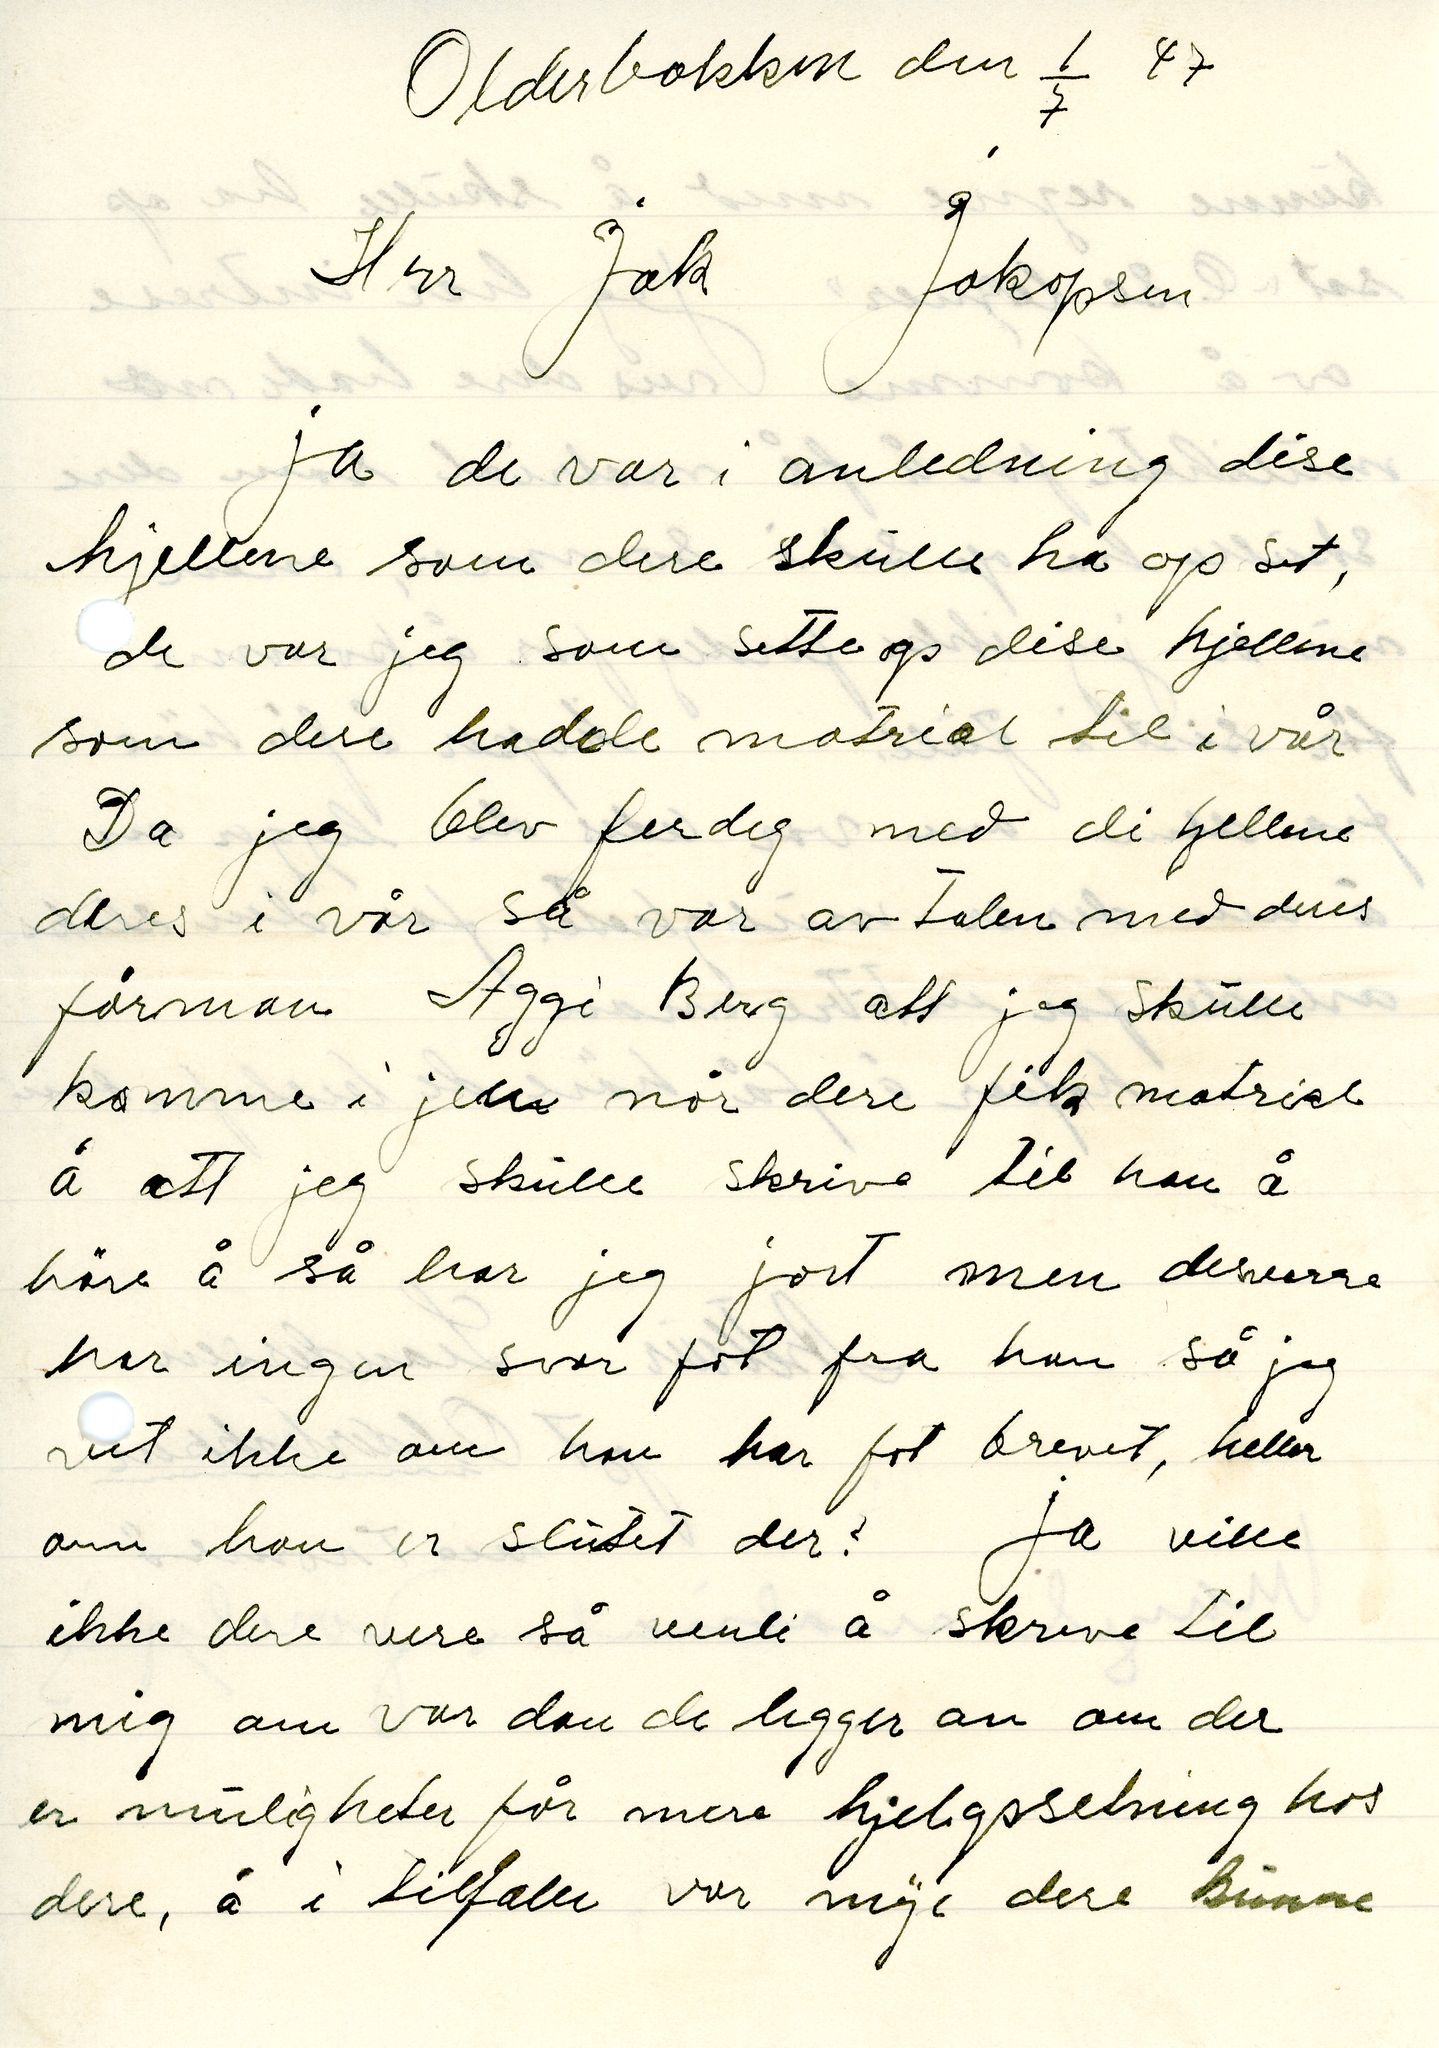 Olderbakken den 1/7 47
Herr Jak Jakopsen
ja de var i anledning dise
hjellene som dere skulle ha op set,
de var jeg som sette op dise hjellene
som dere hadde matrial til i vår
Da jeg blev ferdig med di hjellene
deres i vår så var av talen med deres
fårman Aggi Berg att jeg skulle
komme i jen når dere fik matrial
å att jeg skulle skrive til han å
höre å så har jeg jort men desverre
har ingen svar fot fra han så jeg
vet ikke om han har fot brevet, heller
om han er slutet der? ja ville
ikke dere vere så venli å skreve til
mig om vor dan de ligger an om der
er muligheter får mere hjelopsetning hos
dere, å i tilfelle vor mye dere kunne